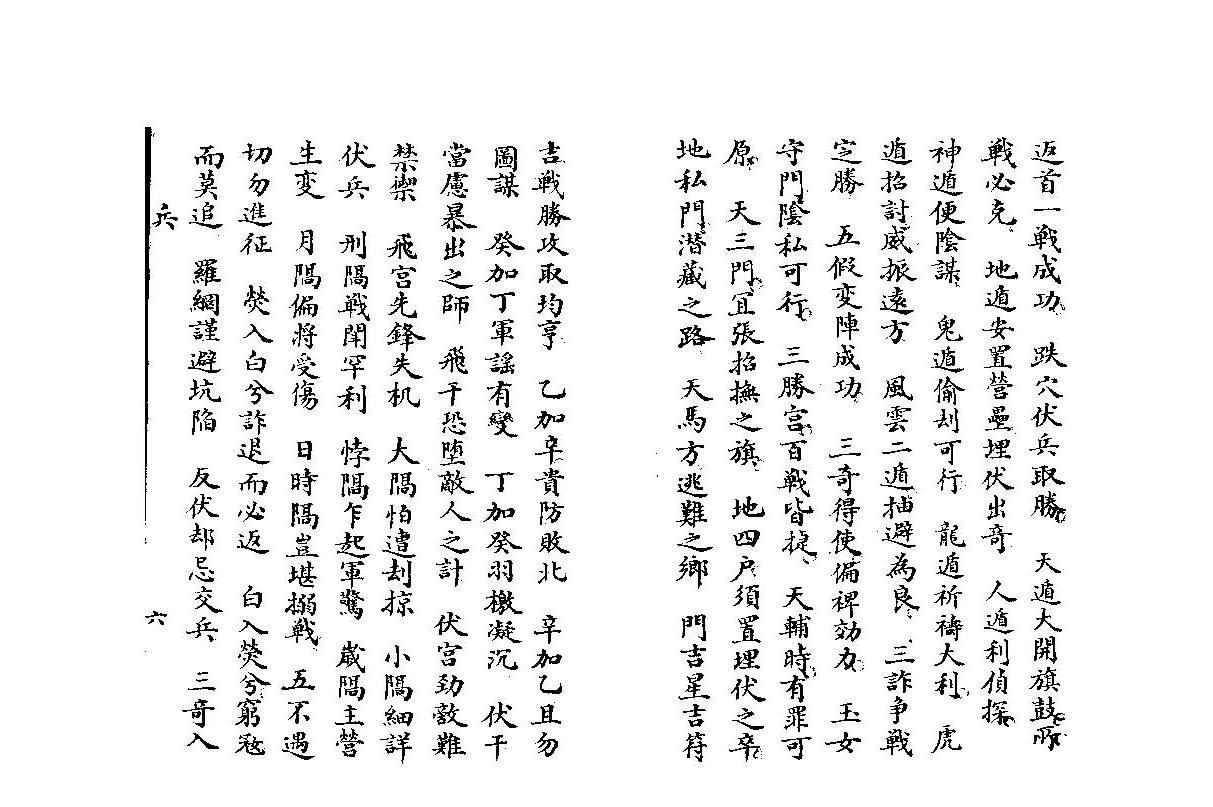 返首一戰成功　跌穴伏兵取勝　天遁大開旗鼓所
戰必克　地遁安置營壘埋伏出竒　人遁利偵探
神遁便陰謀　鬼遁偷刦可行　龍遁祈禱大利　虎
遁招討威振遠方　風雲二遁揷避為良　三詐争戰
定勝　五假變陣成功　三竒得使偏裨効力　玉女
守門陰私可行　三勝宫百戰皆捷　天輔時有罪可
原　天三門宜張招撫之旗　地四户須置埋伏之卒
地私門潛藏之路　天馬方逃難之鄉　門吉星吉符
吉戰勝攻取均亨　乙加辛貴防敗北　辛加乙且勿
圖謀　癸加丁軍謡有變　丁加癸羽檄凝沉　伏干
當慮暴出之師　飛干恐堕敵人之計　伏宫勁敵難
禁禦　飛宫先鋒失机　大隔怕遭刦掠　小隔細詳
伏兵　刑隔戰閗罕利　悖隔乍起軍驚　歲隔主營
生变　月隔偏將受傷　日時隔豈堪搦戰　五不遇
切勿進征　熒入白兮詐退而必返　白入熒兮窮寇
而莫追　羅網謹避坑陷　反伏却忌交兵　三竒入
兵　六